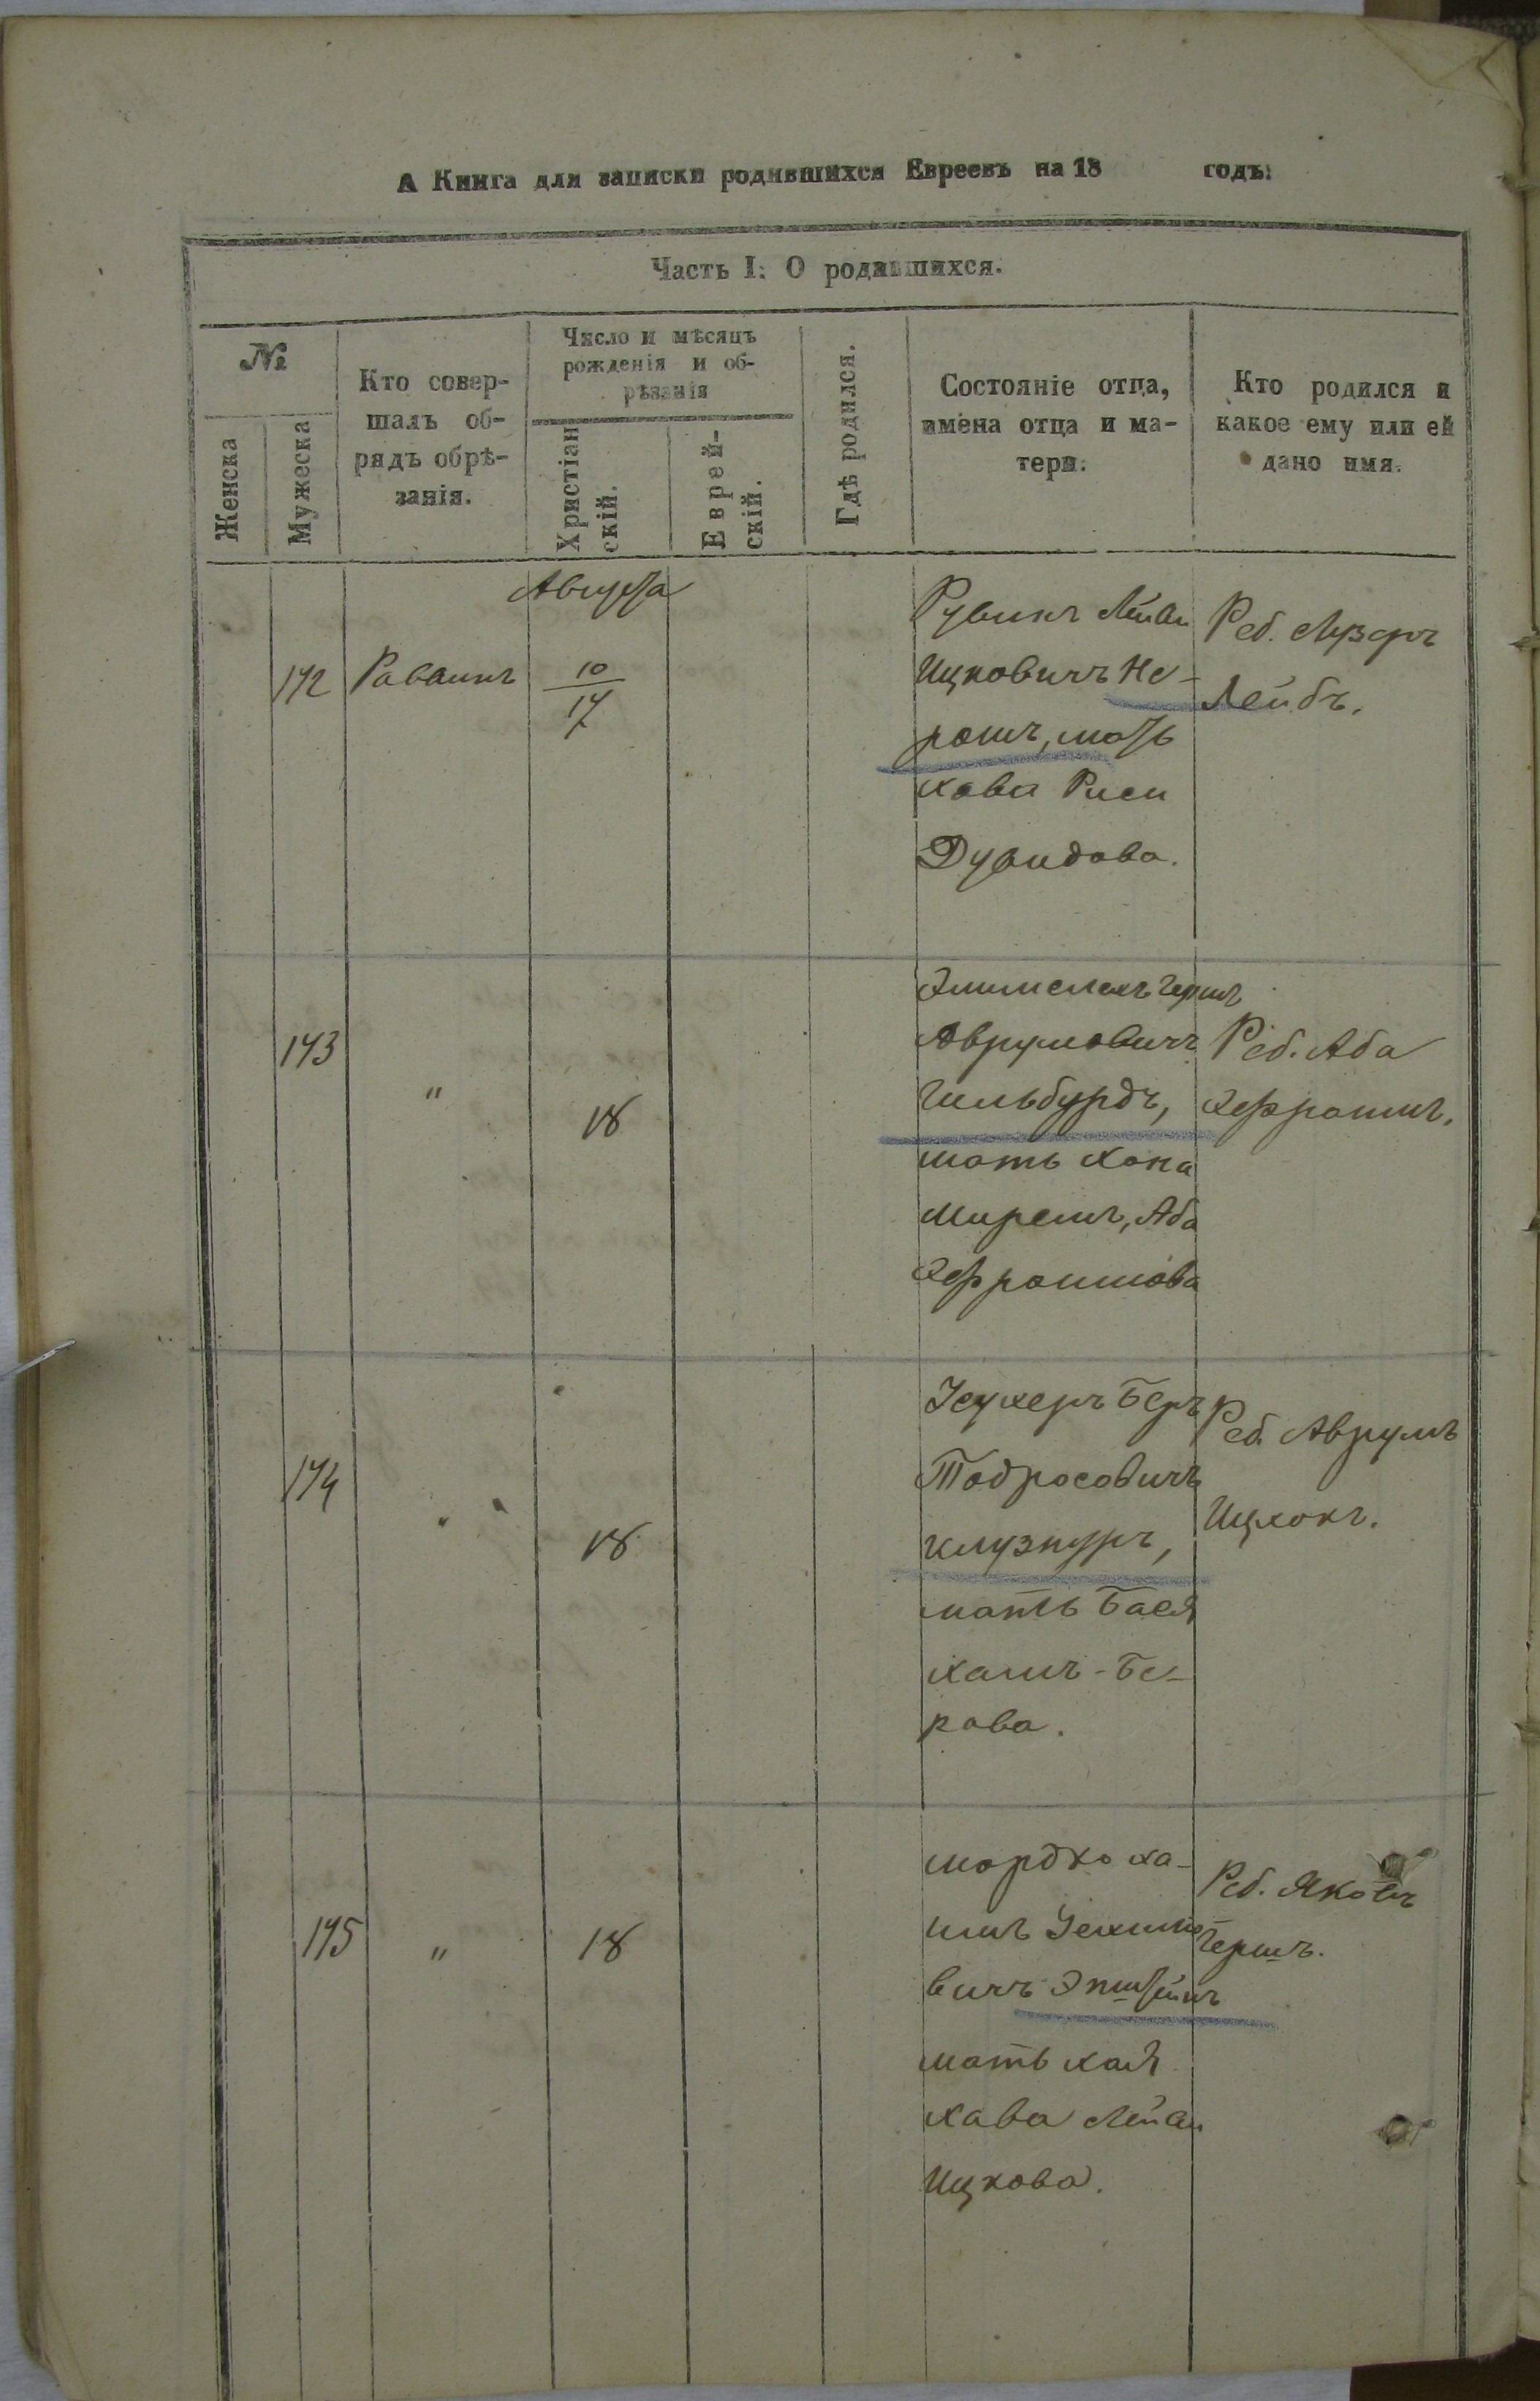 А Книга для записки родившихся Евреевъ на 18 годъ:
Часть I: О родившихся.
№
Женска
Мужеска
Кто совер-
шалъ об-
рядъ обрѣ-
занія.
Число и мѣсяцъ
рожденія и об-
рѣзанія
Христіан
скій.
Еврей-
скій.
Гдѣ родился.
Состояніе отца,
имена отца и ма-
тери.
Кто родился и
какое ему или ей
дано имя.
Августа
172
Раввинъ
10
17
Рувинъ Лейви
Ицковичъ Не-
ромъ, мать
хава Риси
Дувидова.
Реб. Лузеръ
Лейбъ.
173
"
18
Элимелехъ Гершъ
Аврумовичъ
Гильбурдъ,
мать хана
Мирель, Аба
Эфроимова
Реб. Аба
Эфроимъ.
174
"
18
Усухеръ Беръ
Тодросовичъ
Клузнуръ,
мать Бася
хаимъ-Бе-
рова.
Реб. Аврумъ
Ицхокъ.
175
"
18
Мордко ха-
имъ
вичъ Эпштейнъ
мать хая
хава Лейви
Ицкова.
Реб. Яковъ
Гершъ.